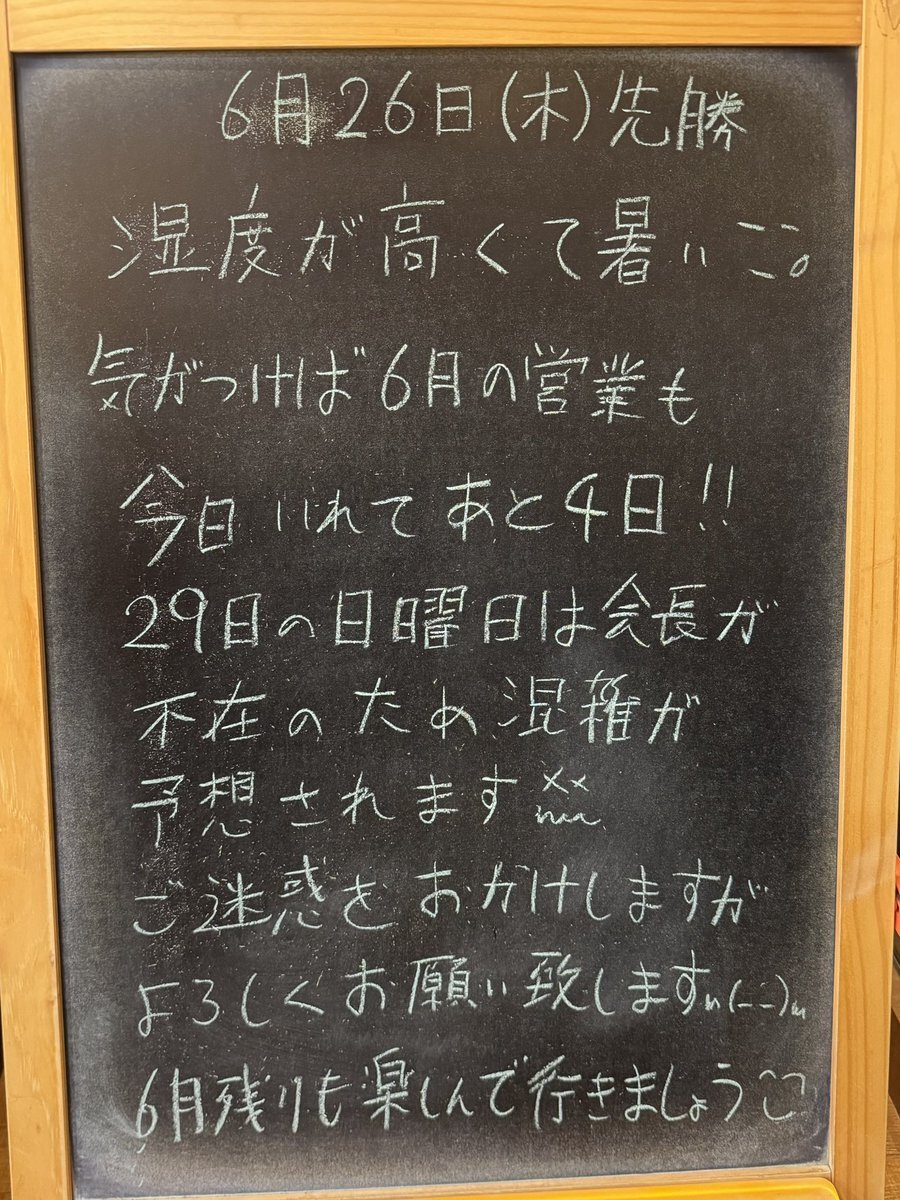 6月26日(木)先勝
湿度が高くて暑い
気がつけば6月の営業も
今日いれてあと4日!!
29日の日曜日は会長が
不在のため混雑が
予想されます
ご迷惑をおかけしますが
よろしくお願い致しますm(__)m
6月残りも楽しんで行きましょう